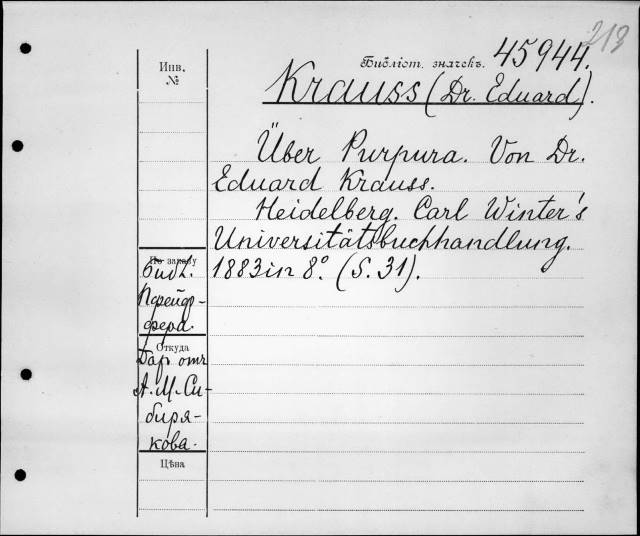 213
Библіот. значекъ. 45944.
Krauss (Dr. Eduard).
Über Purpura. Von Dr.
Eduard Krauss.
Heidelberg. Carl Winter's
Universitätsbuchhandlung.
1883 in 8° (S. 31).
Инв.
№
По заказу
Библ.
Пфейф-
фера.
Откуда
Дар отъ
А. М. Си-
биря-
кова.
Цѣна